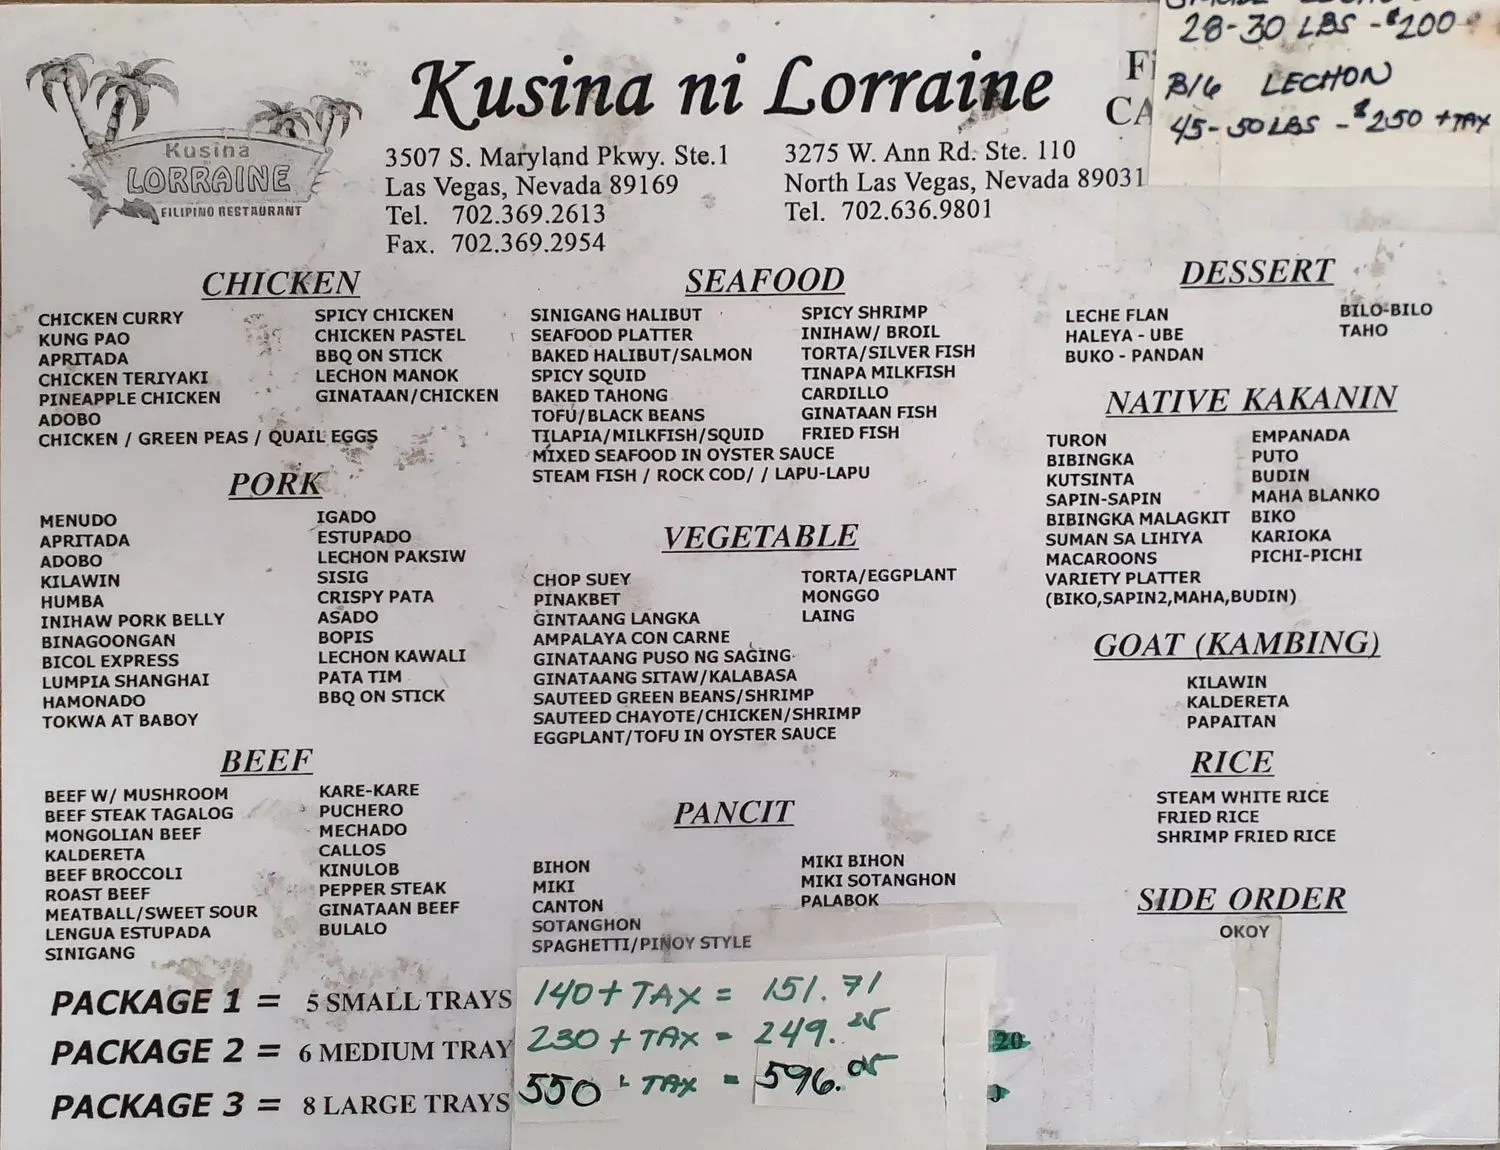 28-30 LBS - $200
BIG LECHON
45-50 LBS - $250 + TAX
Kusina ni Lorraine
Kusina
LORRAINE
FILIPINO RESTAURANT
3507 S. Maryland Pkwy. Ste.1
Las Vegas, Nevada 89169
Tel. 702.369.2613
Fax. 702.369.2954
3275 W. Ann Rd. Ste. 110
North Las Vegas, Nevada 89031
Tel. 702.636.9801
CHICKEN
CHICKEN CURRY
KUNG PAO
APRITADA
CHICKEN TERIYAKI
PINEAPPLE CHICKEN
ADOBO
CHICKEN / GREEN PEAS / QUAIL EGGS
SPICY CHICKEN
CHICKEN PASTEL
BBQ ON STICK
LECHON MANOK
GINATAAN/CHICKEN
PORK
MENUDO
APRITADA
ADOBO
KILAWIN
HUMBA
INIHAW PORK BELLY
BINAGOONGAN
BICOL EXPRESS
LUMPIA SHANGHAI
HAMONADO
TOKWA AT BABOY
IGADO
ESTUPADO
LECHON PAKSIW
SISIG
CRISPY PATA
ASADO
BOPIS
LECHON KAWALI
PATA TIM
BBQ ON STICK
BEEF
BEEF W/ MUSHROOM
BEEF STEAK TAGALOG
MONGOLIAN BEEF
KALDERETA
BEEF BROCCOLI
ROAST BEEF
MEATBALL/SWEET SOUR
LENGUA ESTUPADA
SINIGANG
KARE-KARE
PUCHERO
MECHADO
CALLOS
KINULOB
PEPPER STEAK
GINATAAN BEEF
BULALO
SEAFOOD
SINIGANG HALIBUT
SEAFOOD PLATTER
BAKED HALIBUT/SALMON
SPICY SQUID
BAKED TAHONG
TOFU/BLACK BEANS
TILAPIA/MILKFISH/SQUID
MIXED SEAFOOD IN OYSTER SAUCE
STEAM FISH / ROCK COD/ / LAPU-LAPU
SPICY SHRIMP
INIHAW/ BROIL
TORTA/SILVER FISH
TINAPA MILKFISH
CARDILLO
GINATAAN FISH
FRIED FISH
VEGETABLE
CHOP SUEY
PINAKBET
GINTAANG LANGKA
AMPALAYA CON CARNE
GINATAANG PUSO NG SAGING
GINATAANG SITAW/KALABASA
SAUTEED GREEN BEANS/SHRIMP
SAUTEED CHAYOTE/CHICKEN/SHRIMP
EGGPLANT/TOFU IN OYSTER SAUCE
TORTA/EGGPLANT
MONGGO
LAING
PANCIT
BIHON
MIKI
CANTON
SOTANGHON
SPAGHETTI/PINOY STYLE
MIKI BIHON
MIKI SOTANGHON
PALABOK
DESSERT
LECHE FLAN
HALEYA - UBE
BUKO - PANDAN
BILO-BILO
TAHO
NATIVE KAKANIN
TURON
BIBINGKA
KUTSINTA
SAPIN-SAPIN
BIBINGKA MALAGKIT
SUMAN SA LIHIYA
MACAROONS
VARIETY PLATTER
(BIKO,SAPIN2,MAHA,BUDIN)
EMPANADA
PUTO
BUDIN
MAHA BLANKO
BIKO
KARIOKA
PICHI-PICHI
GOAT (KAMBING)
KILAWIN
KALDERETA
PAPAITAN
RICE
STEAM WHITE RICE
FRIED RICE
SHRIMP FRIED RICE
SIDE ORDER
OKOY
PACKAGE 1 = 5 SMALL TRAYS 140 + TAX = 151.71
PACKAGE 2 = 6 MEDIUM TRAY 230 + TAX = 249.25
20
PACKAGE 3 = 8 LARGE TRAYS 550 + TAX = 596.05